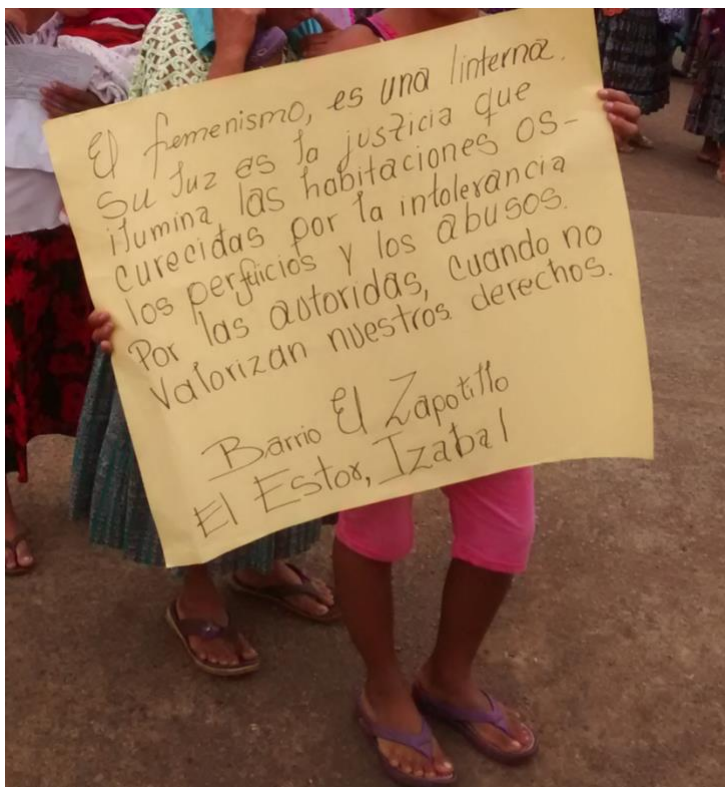 El femenismo, es una linterna.
Su luz es la justicia que
ilumina las habitaciones os-
curecidas por la intolerancia
los perjuicios y los abusos.
Por las autoridas, cuando no
Valorizan nuestros derechos.
Barrio El Zapotillo
El Estor, Izabal